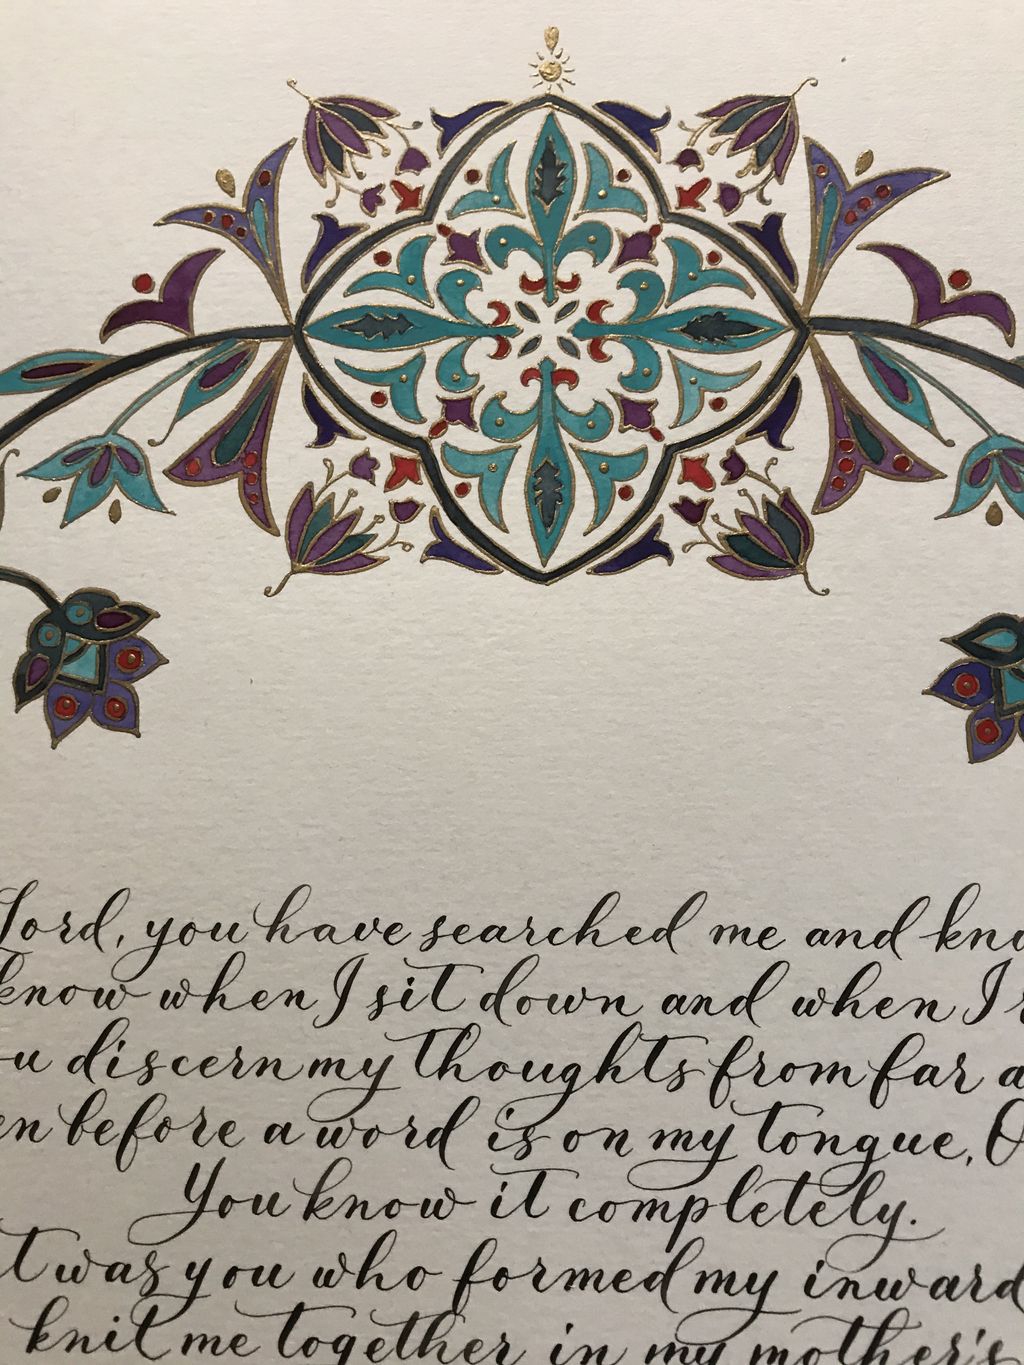 Lord, you have searched me and
know when I sit down and when I
discern my thoughts from far
before a word is on my tongue, O
You know it completely.
was you who formed my inward
knit me together in my mother's